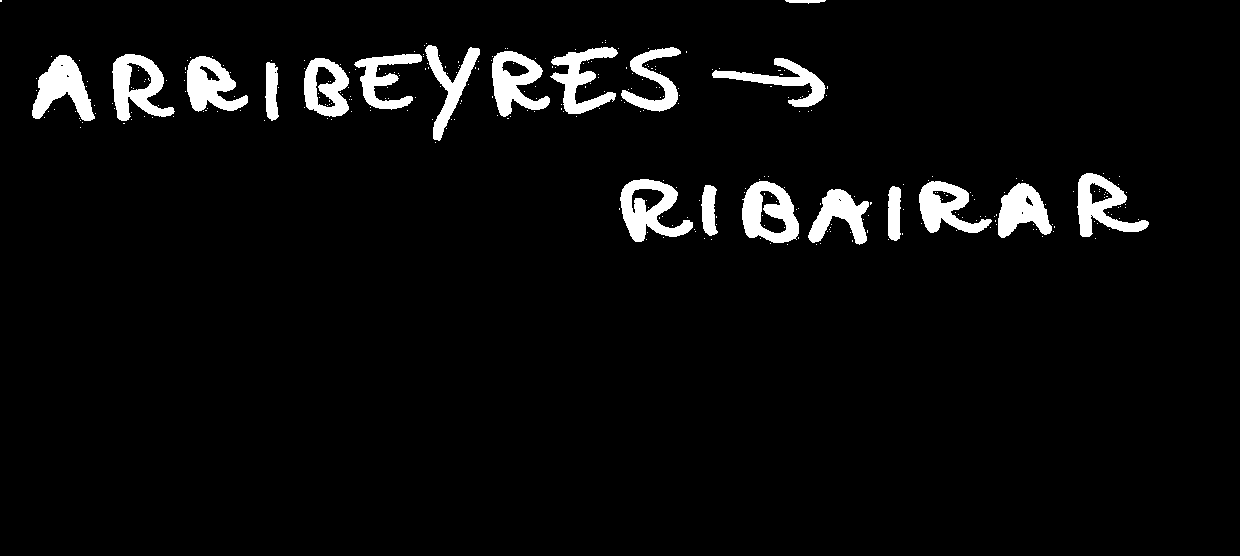 ARRIBEYRES →
RIBAIRAR